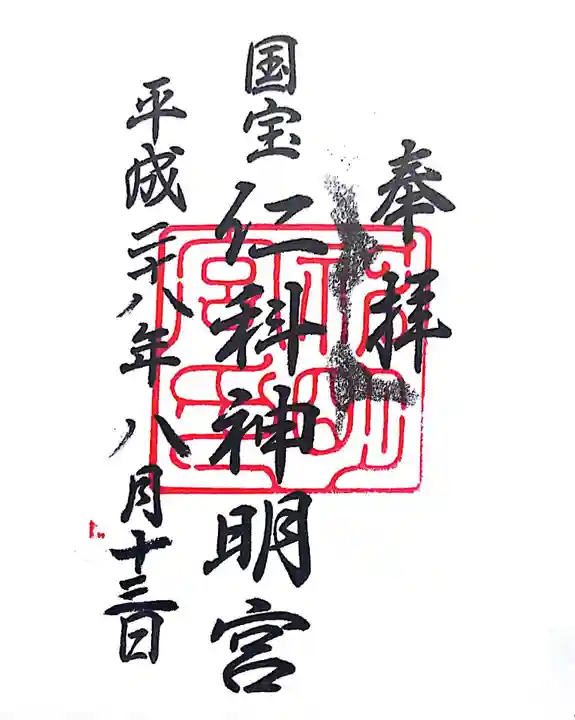 奉拝
国宝 仁科神明宮
平成二十八年八月十三日